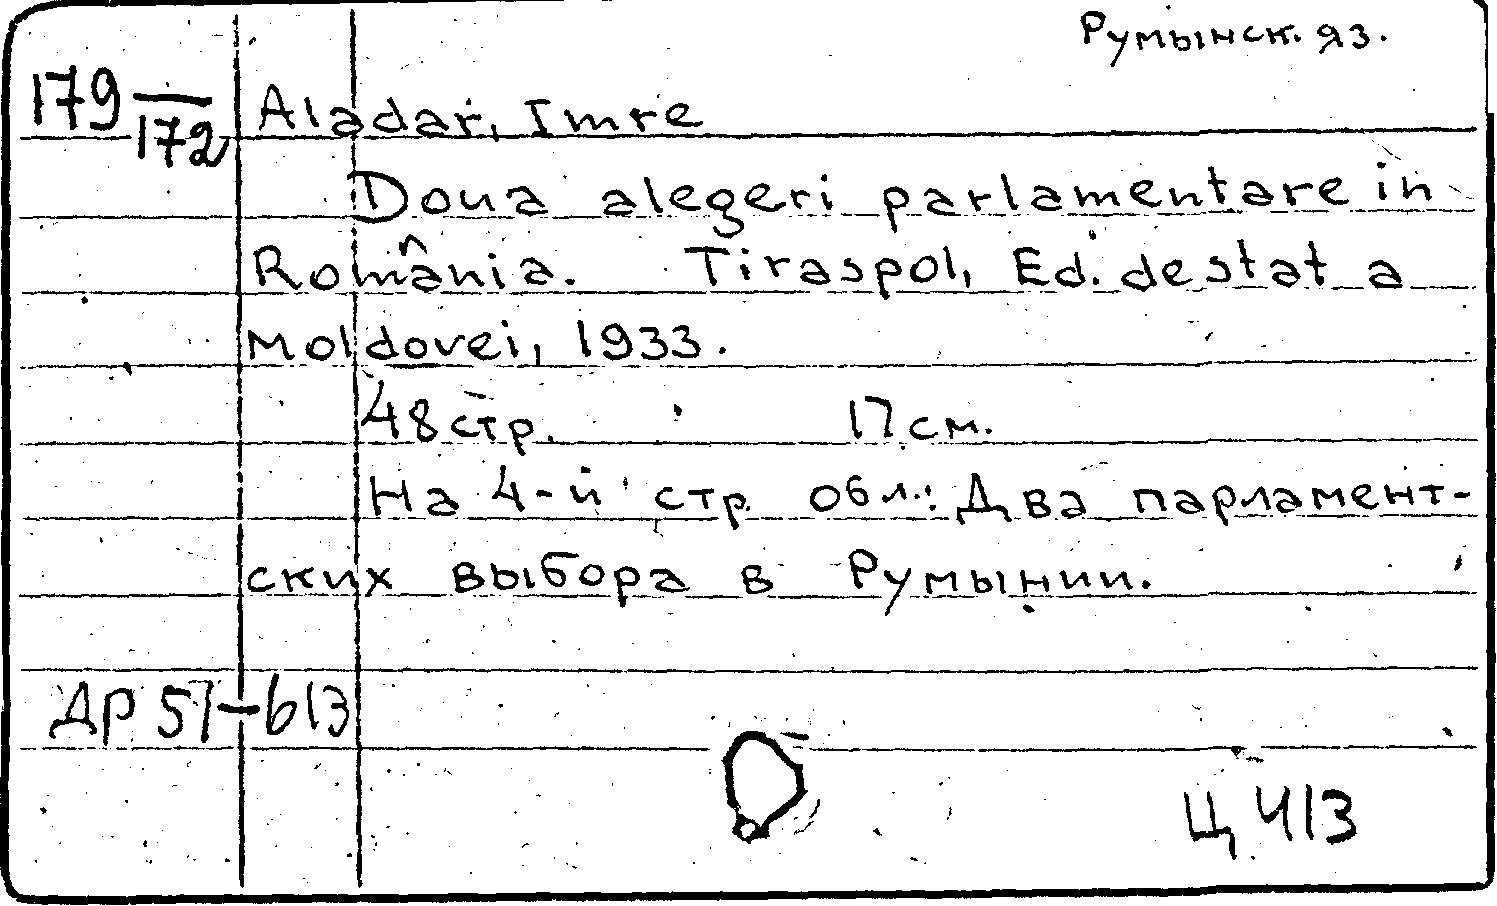 Румынск. яз.
179
172
Aladar, Imre
Doua alegeri parlamentare in
România. Tiraspol, Ed. de stat a
Moldovei, 1933.
48 стр. 17 см.
На 4-й стр. обл.: Два парламент-
ских выбора в Румынии.
ДР 51-613
Ц 413